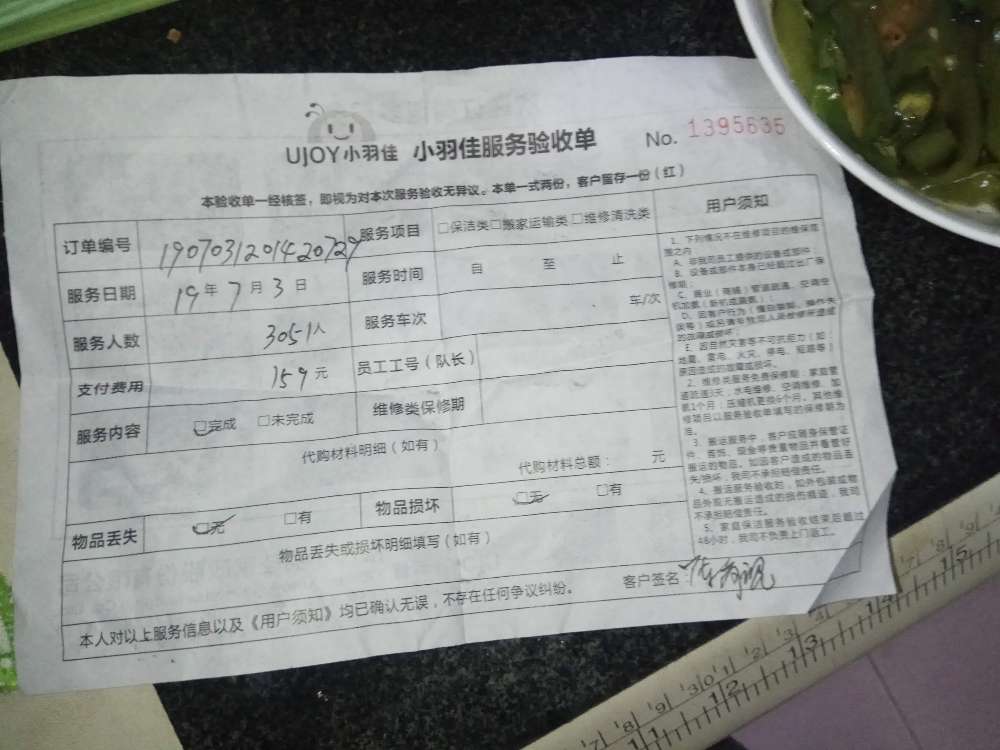 UJOY小羽佳 小羽佳服务验收单 No. 1395635
本验收单一经核签，即视为对本次服务验收无异议。本单一式两份，客户留存一份（红）
订单编号 190703120142072 服务项目 □保洁类□搬家运输类□维修清洗类
服务日期 19年7月3日 服务时间 自 至 止
服务人数 3051人 服务车次 车/次
支付费用 159元 员工工号（队长）
服务内容 □完成 □未完成 维修类保修期
代购材料明细（如有）
代购材料总额： 元
物品丢失 □无 □有 物品损坏 □无 □有
物品丢失或损坏明细填写（如有）
本人对以上服务信息以及《用户须知》均已确认无误，不存在任何争议纠纷。 客户签名：
用户须知
1、下列情况不在维修项目的维保范
围之内
A、非我司员工提供的设备或部件；
B、设备或部件本身已经超过出厂保
修期；
C、商业（商铺）管道疏通、空调空
机加氨（新机或漏氨）；
D、因客户行为（懂的禁期、操作失
E、因自然灾害等不可抗拒力（如：
地震、雷电、火灾、停电、短路等）
原因造成的故障或损坏。
2、维修类服务免费保修期：家庭管
道疏通3天，水电维修、空调维修、加
氨1个月；压缩机更换6个月。其他维
修项目以服务验收单填写的保修期为
准。
3、搬运服务中，客户应随身保管证
件、首饰、现金等贵重物品并看管好
搬运的物品。如因客户造成的物品丢
失/损坏，我司不承担赔偿责任。
4、搬运服务验收时，如外包装或物
品外观无搬运造成的损伤痕迹，我司
不承担赔偿责任。
5、家庭保洁服务验收结束后超过
48小时，我司不负责上门返工。